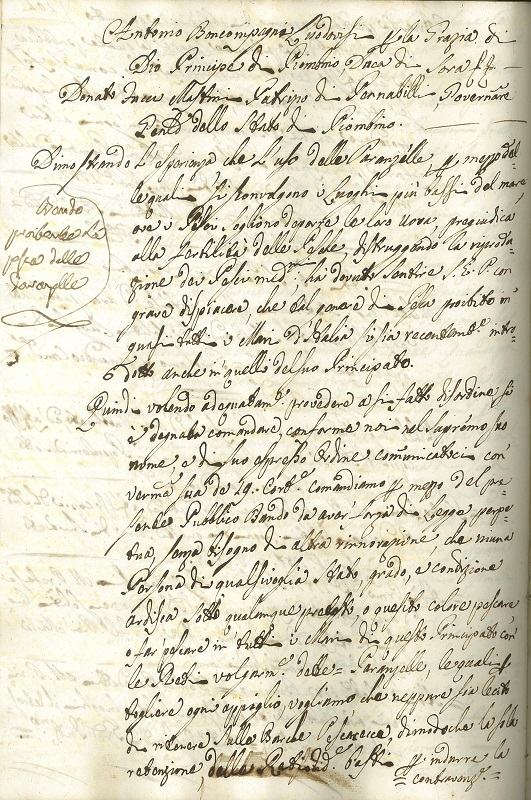 Antonio Boncompagni Ludovisi p la Grazia di
Dio Principe di Piombino, Duca di Sora
Donato Mattini Patrizio di Pennabilli Governatore
Gen.le dello Stato di Piombino.
Dimostrando l'esperienza che l'uso delle Paranzelle, p mezzo del-
le quali si sconvolgono i Luoghi più bassi del mare
ove i Pesci sogliono deporre le loro Uova pregiudica
alla fertilità delle Pesche, distruggendo la riprodu-
zione dei Pesci med.mi, ha dovuto sentire S. E. P. con
grave dispiacere, che tal genere di Pesca proibito in
quasi tutti i Mari d'Italia si sia recentem.e intro-
dotto anche in quelli del suo Principato.
Bando
proibente la
pesca delle
Paranzelle
Quindi volendo adeguatam.e provedere a si fatto disordine si
è degnata comandare, conforme noi nel supremo suo
nome, e di suo espresso ordine comunicatoci con
verma sua de 29. Corr.e comandiamo p mezzo del pre-
sente Pubblico Bando da aver forza di Legge perpe-
tua senza bisogno di altra rinnovazione, che niuna
Persona di qualsivoglia stato, grado, e condizione
ardisca sotto qualunque pretesto, o quesito colore pescare
o far pescare in tutti i Mari di questo Principato con
le Reti volgarm.e dette = Paranzelle, le quali p
togliere ogni appiglio, vogliamo che neppure sia lecito
di ritenere sulle Barche Pescarecce, dimodoche la sola
retenzione delle Reti sud.e basti p indurre la
contravenz.e =